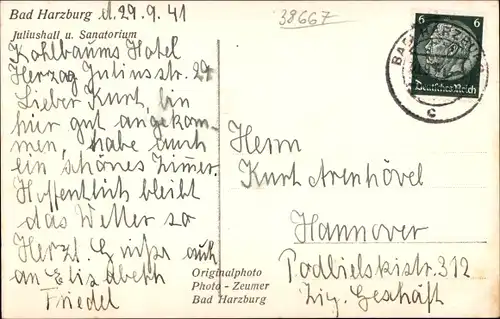 Bad Harzburg d. 29.9.41
Juliushall u. Sanatorium
Kohlbaums Hotel
Herzog Juliusstr. 29
Lieber Kurt, bin
hier gut angekom-
men, habe auch
ein schönes Zimmer.
Hoffentlich bleibt
das Wetter so
Herzl. Grüße auch
an Elisabeth
Friedel
38667
6 6
Deutsches Reich
BAD HARZBURG
c
Herrn
Kurt Arenhövel
Hannover
Podbielskistr. 312
Zig. Geschäft
Originalphoto
Photo - Zeumer
Bad Harzburg